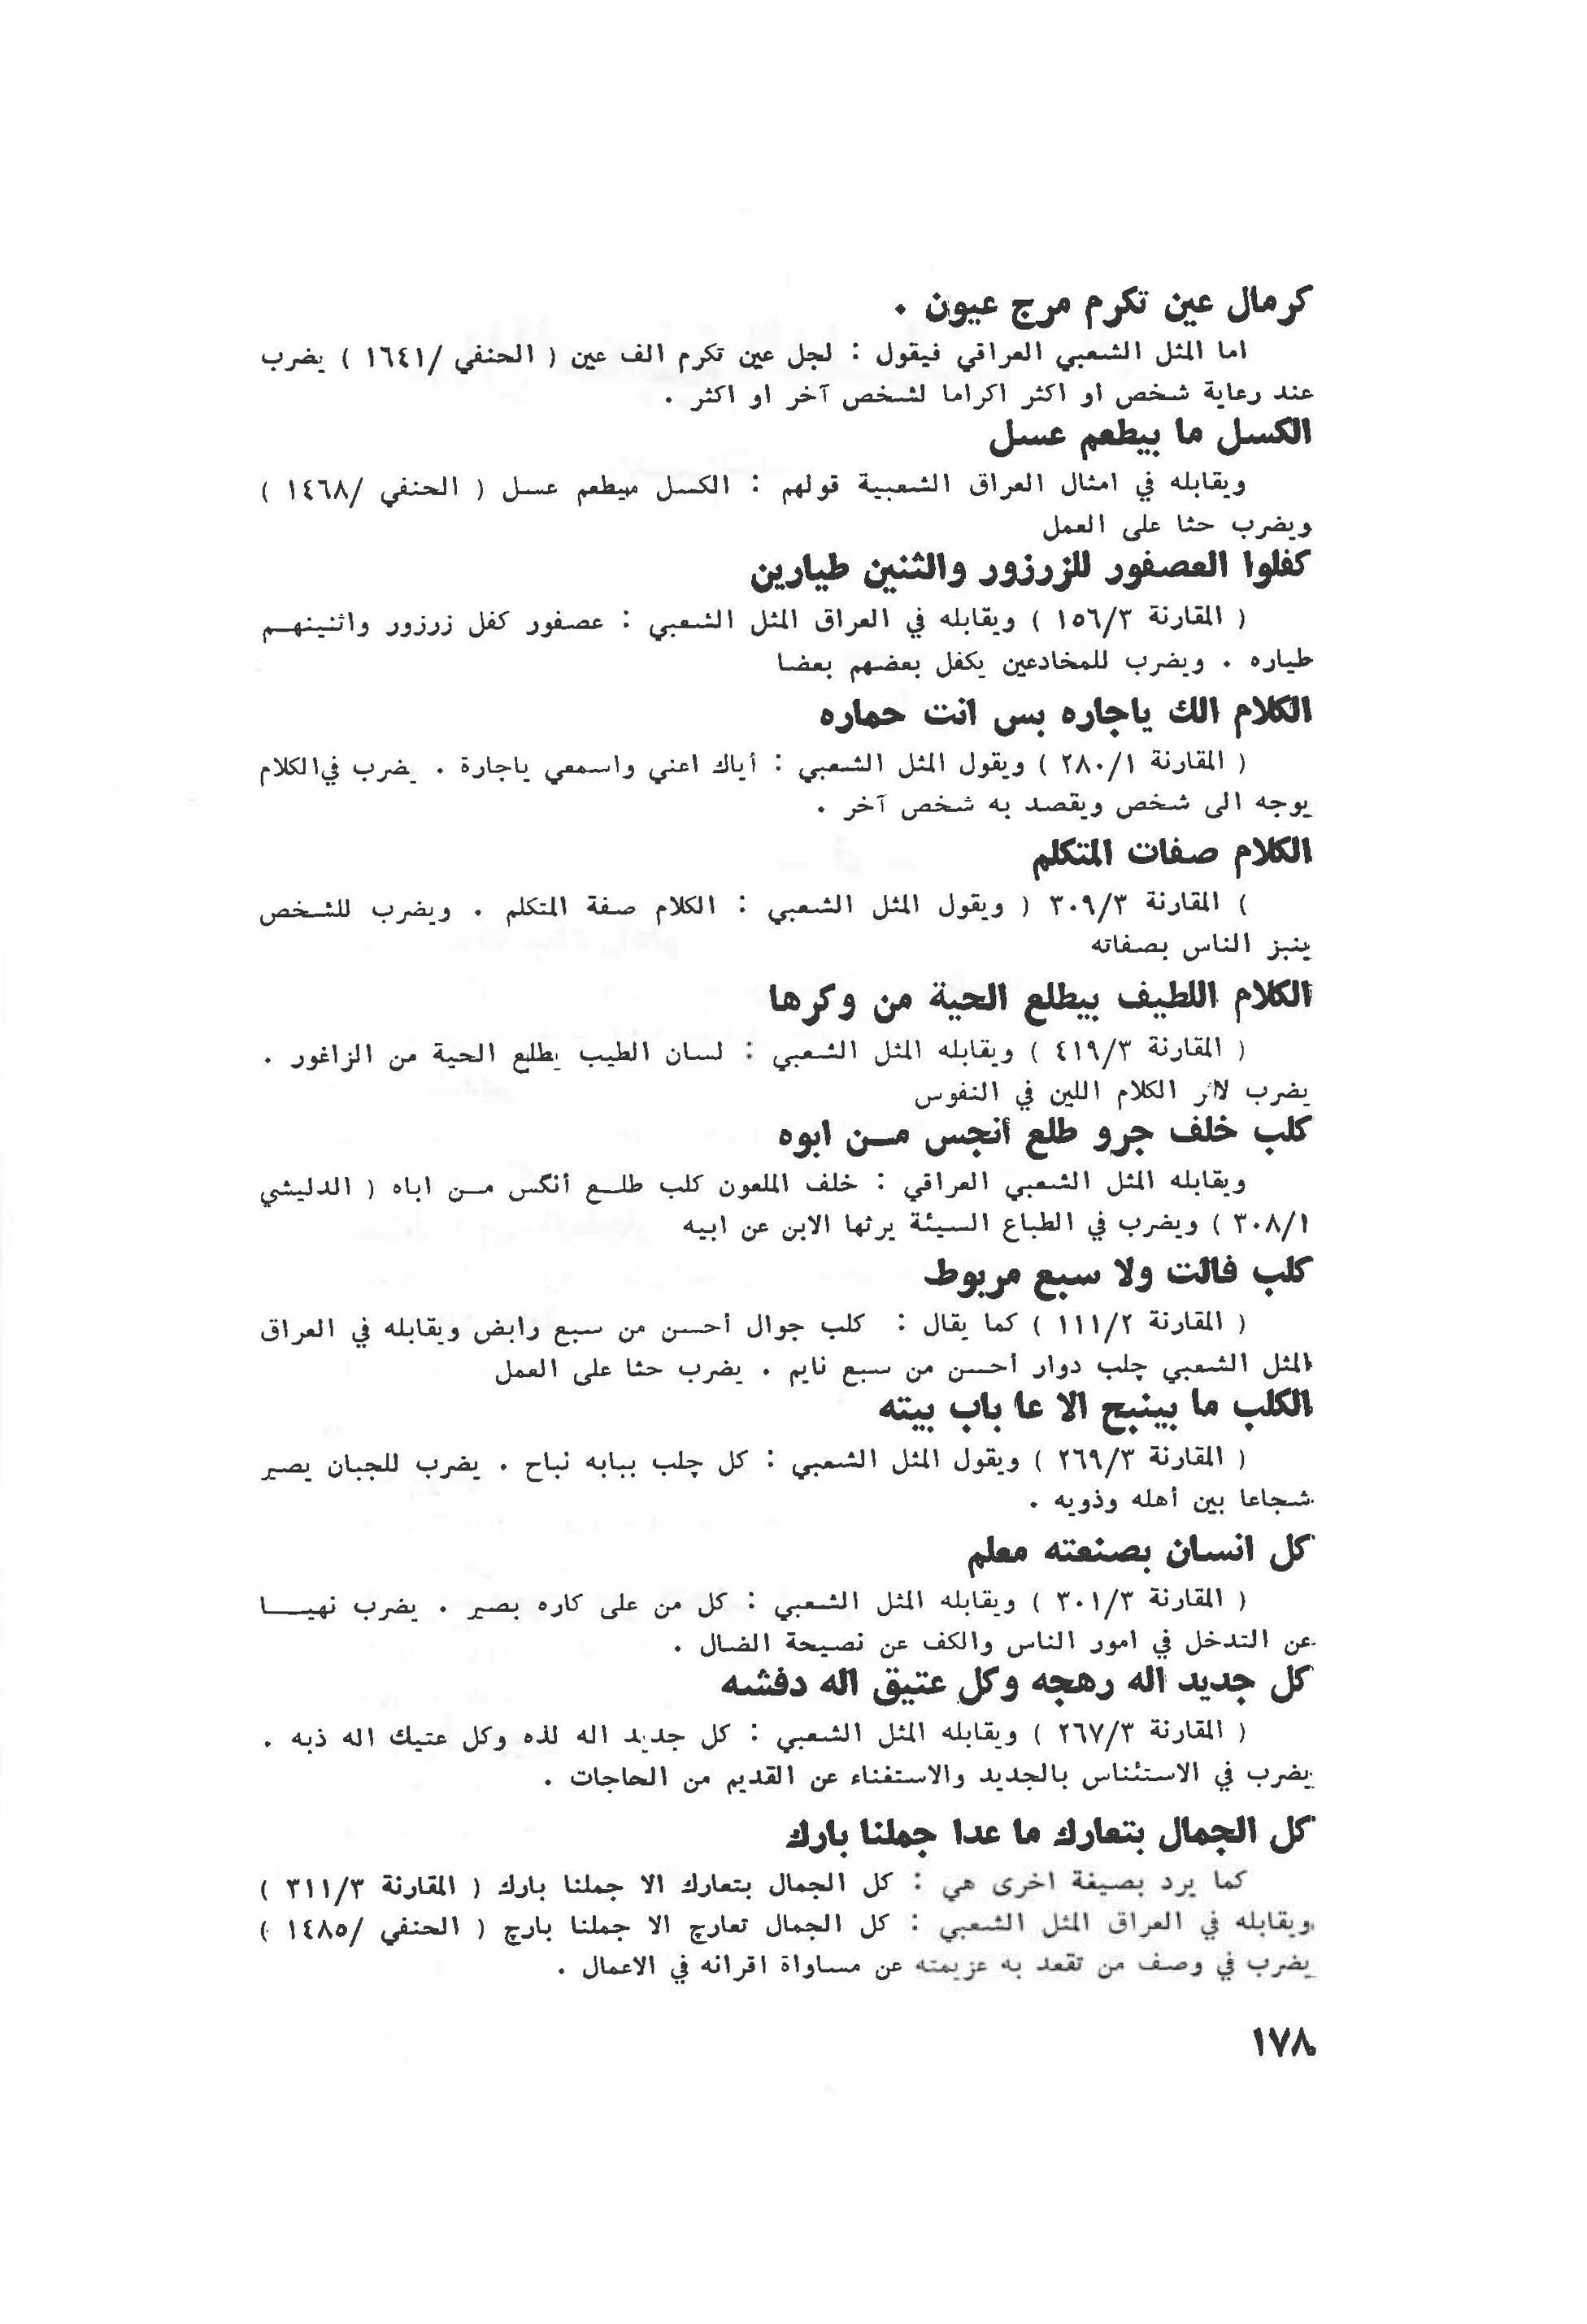 كرمال عين تكرم مرج عيون .
اما المثل الشعبي العراقي فيقول : لجل عين تكرم الف عين ( الحنفي /١٦٤١ ) يضرب
عند رعاية شخص او اكثر اكراما لشخص آخر او اكثر .
الكسل ما بيطعم عسل
ويقابله في امثال العراق الشعبية قولهم : الكسل ميطعم عسل ( الحنفي /١٤٦٨ )
ويضرب حثا على العمل
كفلوا العصفور للزرزور والثنين طيارين
( المقارنة ١٥٦/٣ ) ويقابله في العراق المثل الشعبي : عصفور كفل زرزور واثنينهم
طياره . ويضرب للمخادعين يكفل بعضهم بعضا
الكلام الك ياجاره بس انت حماره
( المقارنة ٢٨٠/١ ) ويقول المثل الشعبي : أياك اعني واسمعي ياجارة . يضرب في الكلام
يوجه الى شخص ويقصد به شخص آخر .
الكلام صفات المتكلم
) المقارنة ٣٠٩/٣ ( ويقول المثل الشعبي : الكلام صفة المتكلم . ويضرب للشخص
ينبز الناس بصفاته
الكلام اللطيف بيطلع الحية من وكرها
( المقارنة ٤١٩/٣ ) ويقابله المثل الشعبي : لسان الطيب يطلع الحية من الزاغور .
يضرب لاثر الكلام اللين في النفوس
كلب خلف جرو طلع أنجس من ابوه
ويقابله المثل الشعبي العراقي : خلف الملعون كلب طلع أنگس من اباه ( الدليشي
٣٠٨/١ ) ويضرب في الطباع السيئة يرثها الابن عن ابيه
كلب فالت ولا سبع مربوط
( المقارنة ١١١/٢ ) كما يقال : كلب جوال أحسن من سبع رابض ويقابله في العراق
المثل الشعبي چلب دوار أحسن من سبع نايم . يضرب حثا على العمل
الكلب ما بينبح الا عا باب بيته
( المقارنة ٢٦٩/٣ ) ويقول المثل الشعبي : كل چلب ببابه نباح . يضرب للجبان يصير
شجاعا بين أهله وذويه .
كل انسان بصنعته معلم
( المقارنة ٣٠١/٣ ) ويقابله المثل الشعبي : كل من على كاره بصير . يضرب نهيا
عن التدخل في امور الناس والكف عن نصيحة الضال .
كل جديد اله رهجه وكل عتيق اله دفشه
( المقارنة ٢٦٧/٣ ) ويقابله المثل الشعبي : كل جديد اله لذه وكل عتيك اله ذبه .
يضرب في الاستئناس بالجديد والاستغناء عن القديم من الحاجات .
كل الجمال بتعارك ما عدا جملنا بارك
كما يرد بصيغة اخرى هي : كل الجمال بتعارك الا جملنا بارك ( المقارنة ٣١١/٣ )
ويقابله في العراق المثل الشعبي : كل الجمال تعارچ الا جملنا بارچ ( الحنفي /١٤٨٥ )
يضرب في وصف من تقعد به عزيمته عن مساواة اقرانه في الاعمال .
١٧٨